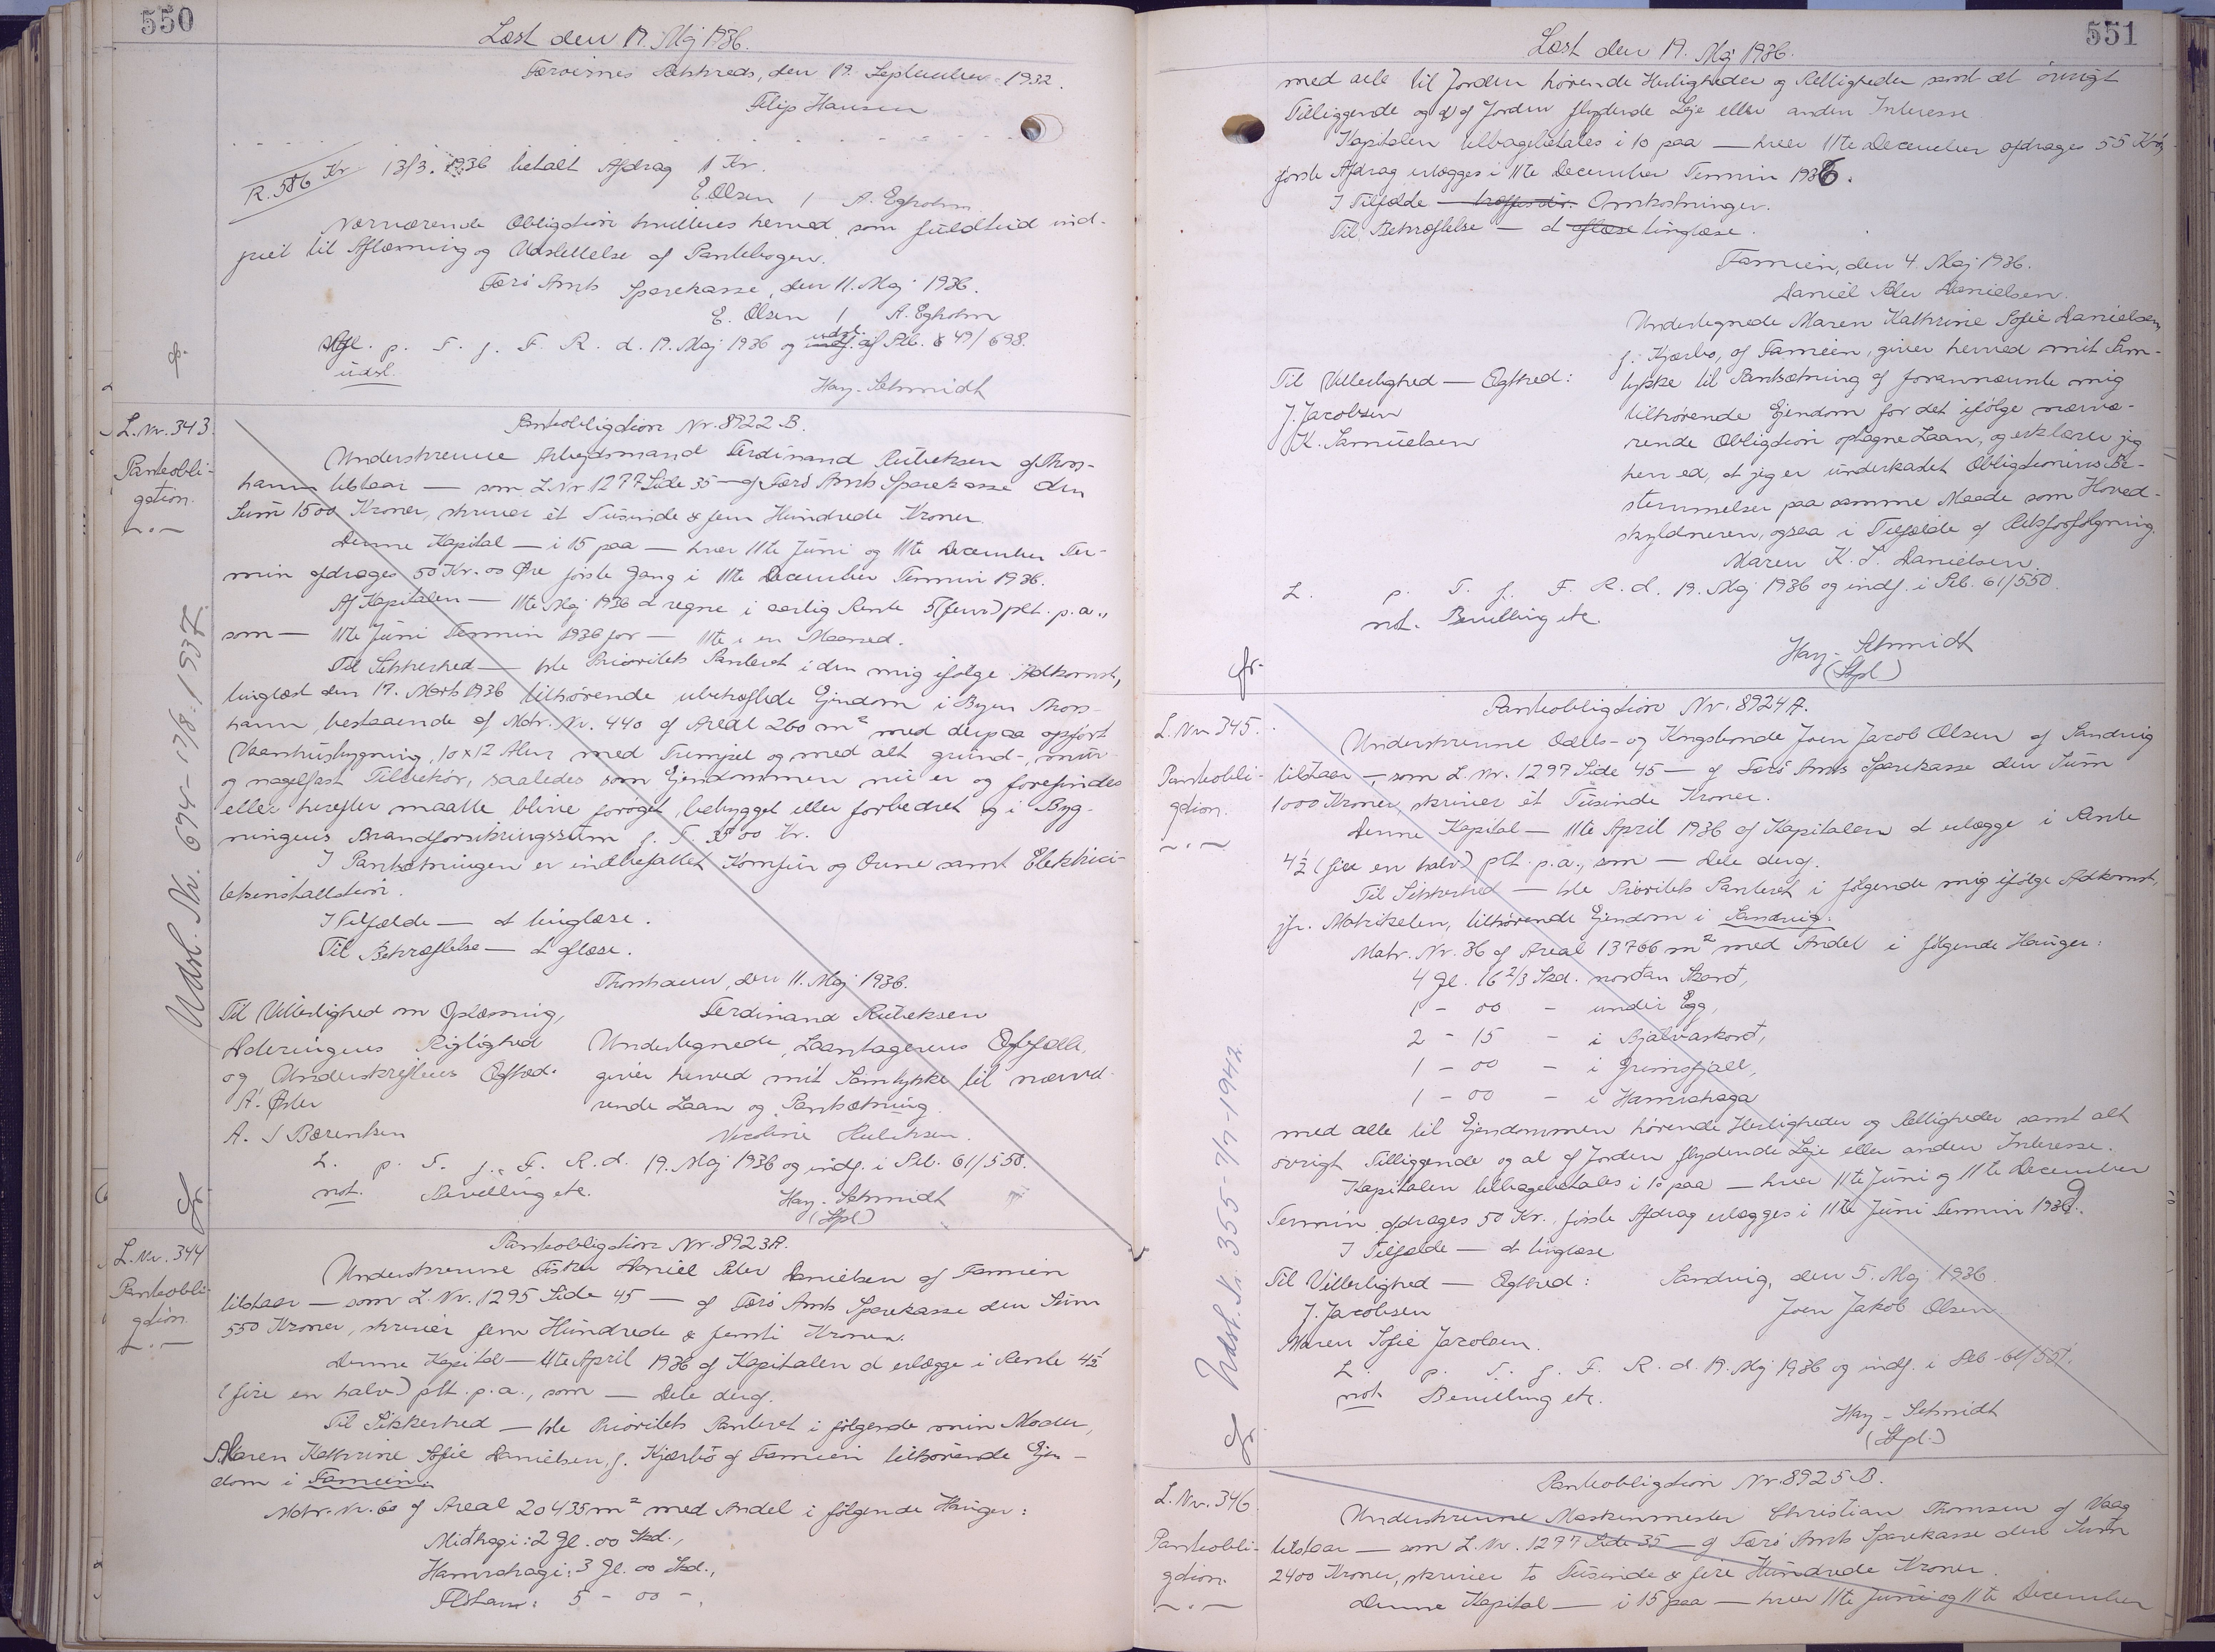 550
Læst den 19. Maj 1936.
Færøernes Retskreds, den 19. September 1932.
Filip Hansen
R. 586 Kr
13/3. 1936 betalt Afdrag 1 Kr.
E. Olsen / A. Egholm
Nærværende Obligation kvitteres herved som fuldtud ind-
friet til Aflæsning og Udslettelse af Pantebogen.
Færø Amts Sparekasse, den 11. Maj 1936.
E. Olsen / A. Egholm
Afl. p. T. f. F. R. d. 19. Maj 1936 og udsl. af Pb. 49/698.
udsl.
Hay-Schmidt
L. Nr. 343.
Pantobli-
gation.
Udsl. Nr. 674 - 17/8. 1937.
Pantobligation Nr. 8922 B.
Underskrevne Arbejdsmand Ferdinand Rubeksen af Thors-
havn tilstaar — som L. Nr 1277 Side 35 — af Færø Amts Sparekasse den
Sum 1500 Kroner, skriver ét Tusinde & fem Hundrede Kroner.
Denne Kapital — i 15 paa — hver 11te Juni og 11te December Ter-
min afdrages 50 Kr. 00 Øre første Gang i 11te December Termin 1936.
Af Kapitalen — 11te Maj 1936 at regne i aarlig Rente 5 (fem) pct. p. a.,
som — 11te Juni Termin 1936 for — 11te i en Maaned.
Til Sikkerhed — 1ste Prioritets Panteret i den mig ifølge Adkomst,
tinglæst den 17. Marts 1936 tilhørende ubehæftede Ejendom i Byen Thors-
havn, bestaaende af Matr. Nr. 440 af Areal 260 m² med derpaa opført
Vaaningshusbygning, 10x12 Alen med Trempel og med alt grund-, mur-
og nagelfast Tilbehør, saaledes som Ejendommen nu er og forefindes
eller herefter maatte blive forøget, bebygget eller forbedret og i Byg-
ningens Brandforsikringssum f. T. 3500 Kr.
I Pantsætningen er indbefattet Komfur og Ovne samt Elektrici-
tetsinstallation.
I Tilfælde — at tinglæse.
Til Bekræftelse — at aflæse.
Thorshavn, den 11. Maj 1936.
Til Vitterlighed om Oplæsning,
Ferdinand Rubeksen
Dateringens Rigtighed
Undertegnede, Laantagerens Ægtefælle,
og Underskriftens Ægthed.
giver herved mit Samtykke til nærvæ-
A. Øster
rende Laan og Pantsætning.
A. S Bærentsen
Nicoline Rubeksen.
L. p. T. f. F. R. d. 19. Maj 1936 og indf. i Pb. 61/550.
not. Bevilling etc.
Hay-Schmidt
(Stpl)
L. Nr. 344
Pantobli-
gation.
Pantobligation Nr. 8923 A.
Underskrevne Fisker Daniel Peter Danielsen af Famien
tilstaar — som L. Nr. 1295 Side 45 — af Færø Amts Sparekasse den Sum
550 Kroner, skriver fem Hundrede & femti Kroner.
Denne Kapital — 11te April 1936 af Kapitalen at erlægge i Rente 4½
(fire en halv) pct. p. a., som — Dele deraf.
Til Sikkerhed — 1ste Prioritets Panteret i følgende min Moder,
Maren Kathrine Sofie Danielsen, f. Kjærbo af Famien tilhørende Ejen-
dom i Famien.
Matr. Nr. 60 af Areal 20435 m² med Andel i følgende Hauger:
Miðhagi: 2 Gl. 00 Skd.,
Hamrahagi: 3 Gl. 00 Skd.,
5 - 00 -,
551
Læst den 19. Maj 1936.
med alle til Jorden hørende Herligheder og Rettigheder samt alt øvrigt
Tilliggende og al af Jorden flydende Leje eller anden Interesse.
Kapitalen tilbagebetales i 10 paa — hver 11te December afdrages 55 Kr.,
første Afdrag erlægges i 11te December Termin 1936.
I Tilfælde — Omkostninger.
Til Bekræftelse — at aflæse tinglæse.
Famien, den 4. Maj 1936.
Daniel Peter Danielsen.
Undertegnede Maren Kathrine Sofie Danielsen,
f. Kjærbo, af Famien, giver herved mit Sam-
Til Vitterlighed — Ægthed:
tykke til Pantsætning af forannævnte mig
J. Jacobsen
tilhørende Ejendom for det ifølge nærvæ-
K. Samuelsen
rende Obligation optagne Laan, og erklærer jeg
herved, at jeg er underkastet Obligationens Be-
stemmelser paa samme Maade som Hoved-
skyldneren, ogsaa i Tilfælde af Retsforfølgning.
Maren K. S. Danielsen.
L. p. T. f. F. R. d. 19. Maj 1936 og indf. i Pb. 61/550.
not. Bevilling etc.
Hay-Schmidt
(Stpl)
L. Nr 345.
Pantobli-
gation.
Udsl. Nr. 355 - 7/7-1942.
Pantobligation Nr. 8924 A.
Underskrevne Odels- og Kongsbonde Joen Jacob Olsen af Sandvig
tilstaar — som L. Nr. 1297 Side 45 — af Færø Amts Sparekasse den Sum
1000 Kroner, skriver ét Tusinde Kroner.
Denne Kapital — 11te April 1936 af Kapitalen at erlægge i Rente
4½ (fire en halv) pct. p. a., som — Dele deraf.
Til Sikkerhed — 1ste Prioritets Panteret i følgende mig ifølge Adkomst,
jfr. Matrikelen, tilhørende Ejendom i Sandvig:
Matr. Nr. 36 af Areal 13766 m² med Andel i følgende Hauger:
4 Gl. 16 2/3 Skd. norðan Skarð,
1 - 00 - undir Egg,
2 - 15 - i Bjalvaskorð,
1 - 00 - i Grimsfjall,
1 - 00 - i Hamrahaga
med alle til Ejendommen hørende Herligheder og Rettigheder samt alt
øvrigt Tilliggende og al af Jorden flydende Leje eller anden Interesse.
Kapitalen tilbagebetales i 10 paa — hver 11te Juni og 11te December
Termin afdrages 50 Kr., første Afdrag erlægges i 11te Juni Termin 1939.
I Tilfælde — at tinglæse
Til Vitterlighed — Ægthed:
Sandvig, den 5. Maj 1936.
J. Jacobsen
Joen Jakob Olsen
Maren Sofie Jacobsen.
L. p. T. f. F. R. d. 19. Maj 1936 og indf. i Pb. 61/551.
not. Bevilling etc.
Hay-Schmidt
(Stpl.)
L. Nr. 346
Pantobli-
gation.
Pantobligation Nr. 8925 B.
Underskrevne Maskinmester Christian Thomsen af Vaag
tilstaar — som L. Nr. 1277 Side 35 — af Færø Amts Sparekasse den Sum
2400 Kroner, skriver to Tusinde & fire Hundrede Kroner.
Denne Kapital — i 15 paa — hver 11te Juni og 11te December